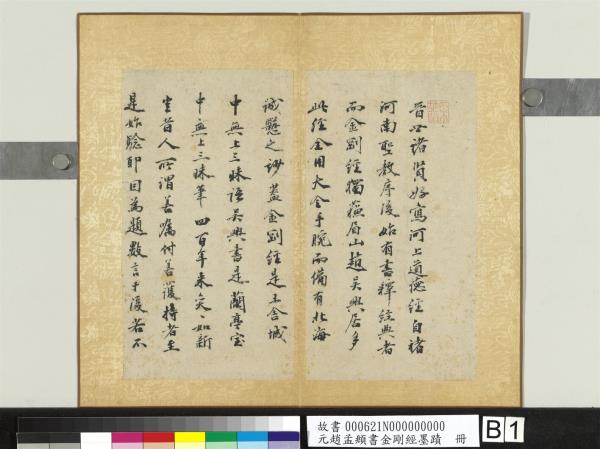 晉世諸賢好寫河上道德經自褚
河南聖教序後始有書釋經典者
而金剛經獨蘇眉山趙吳興居多
此經全用大令手腕而備有北海
誠懸之妙蓋金剛經是王舍城
中無上三昧語吳興書是蘭亭室
中無上三昧筆四百年來炙炙如新
坐昔人所謂善囑付善護持者至
是始驗即因為題數言于後若不
故書 000621N000000000
元趙孟頫書金剛經墨蹟 冊
B 1